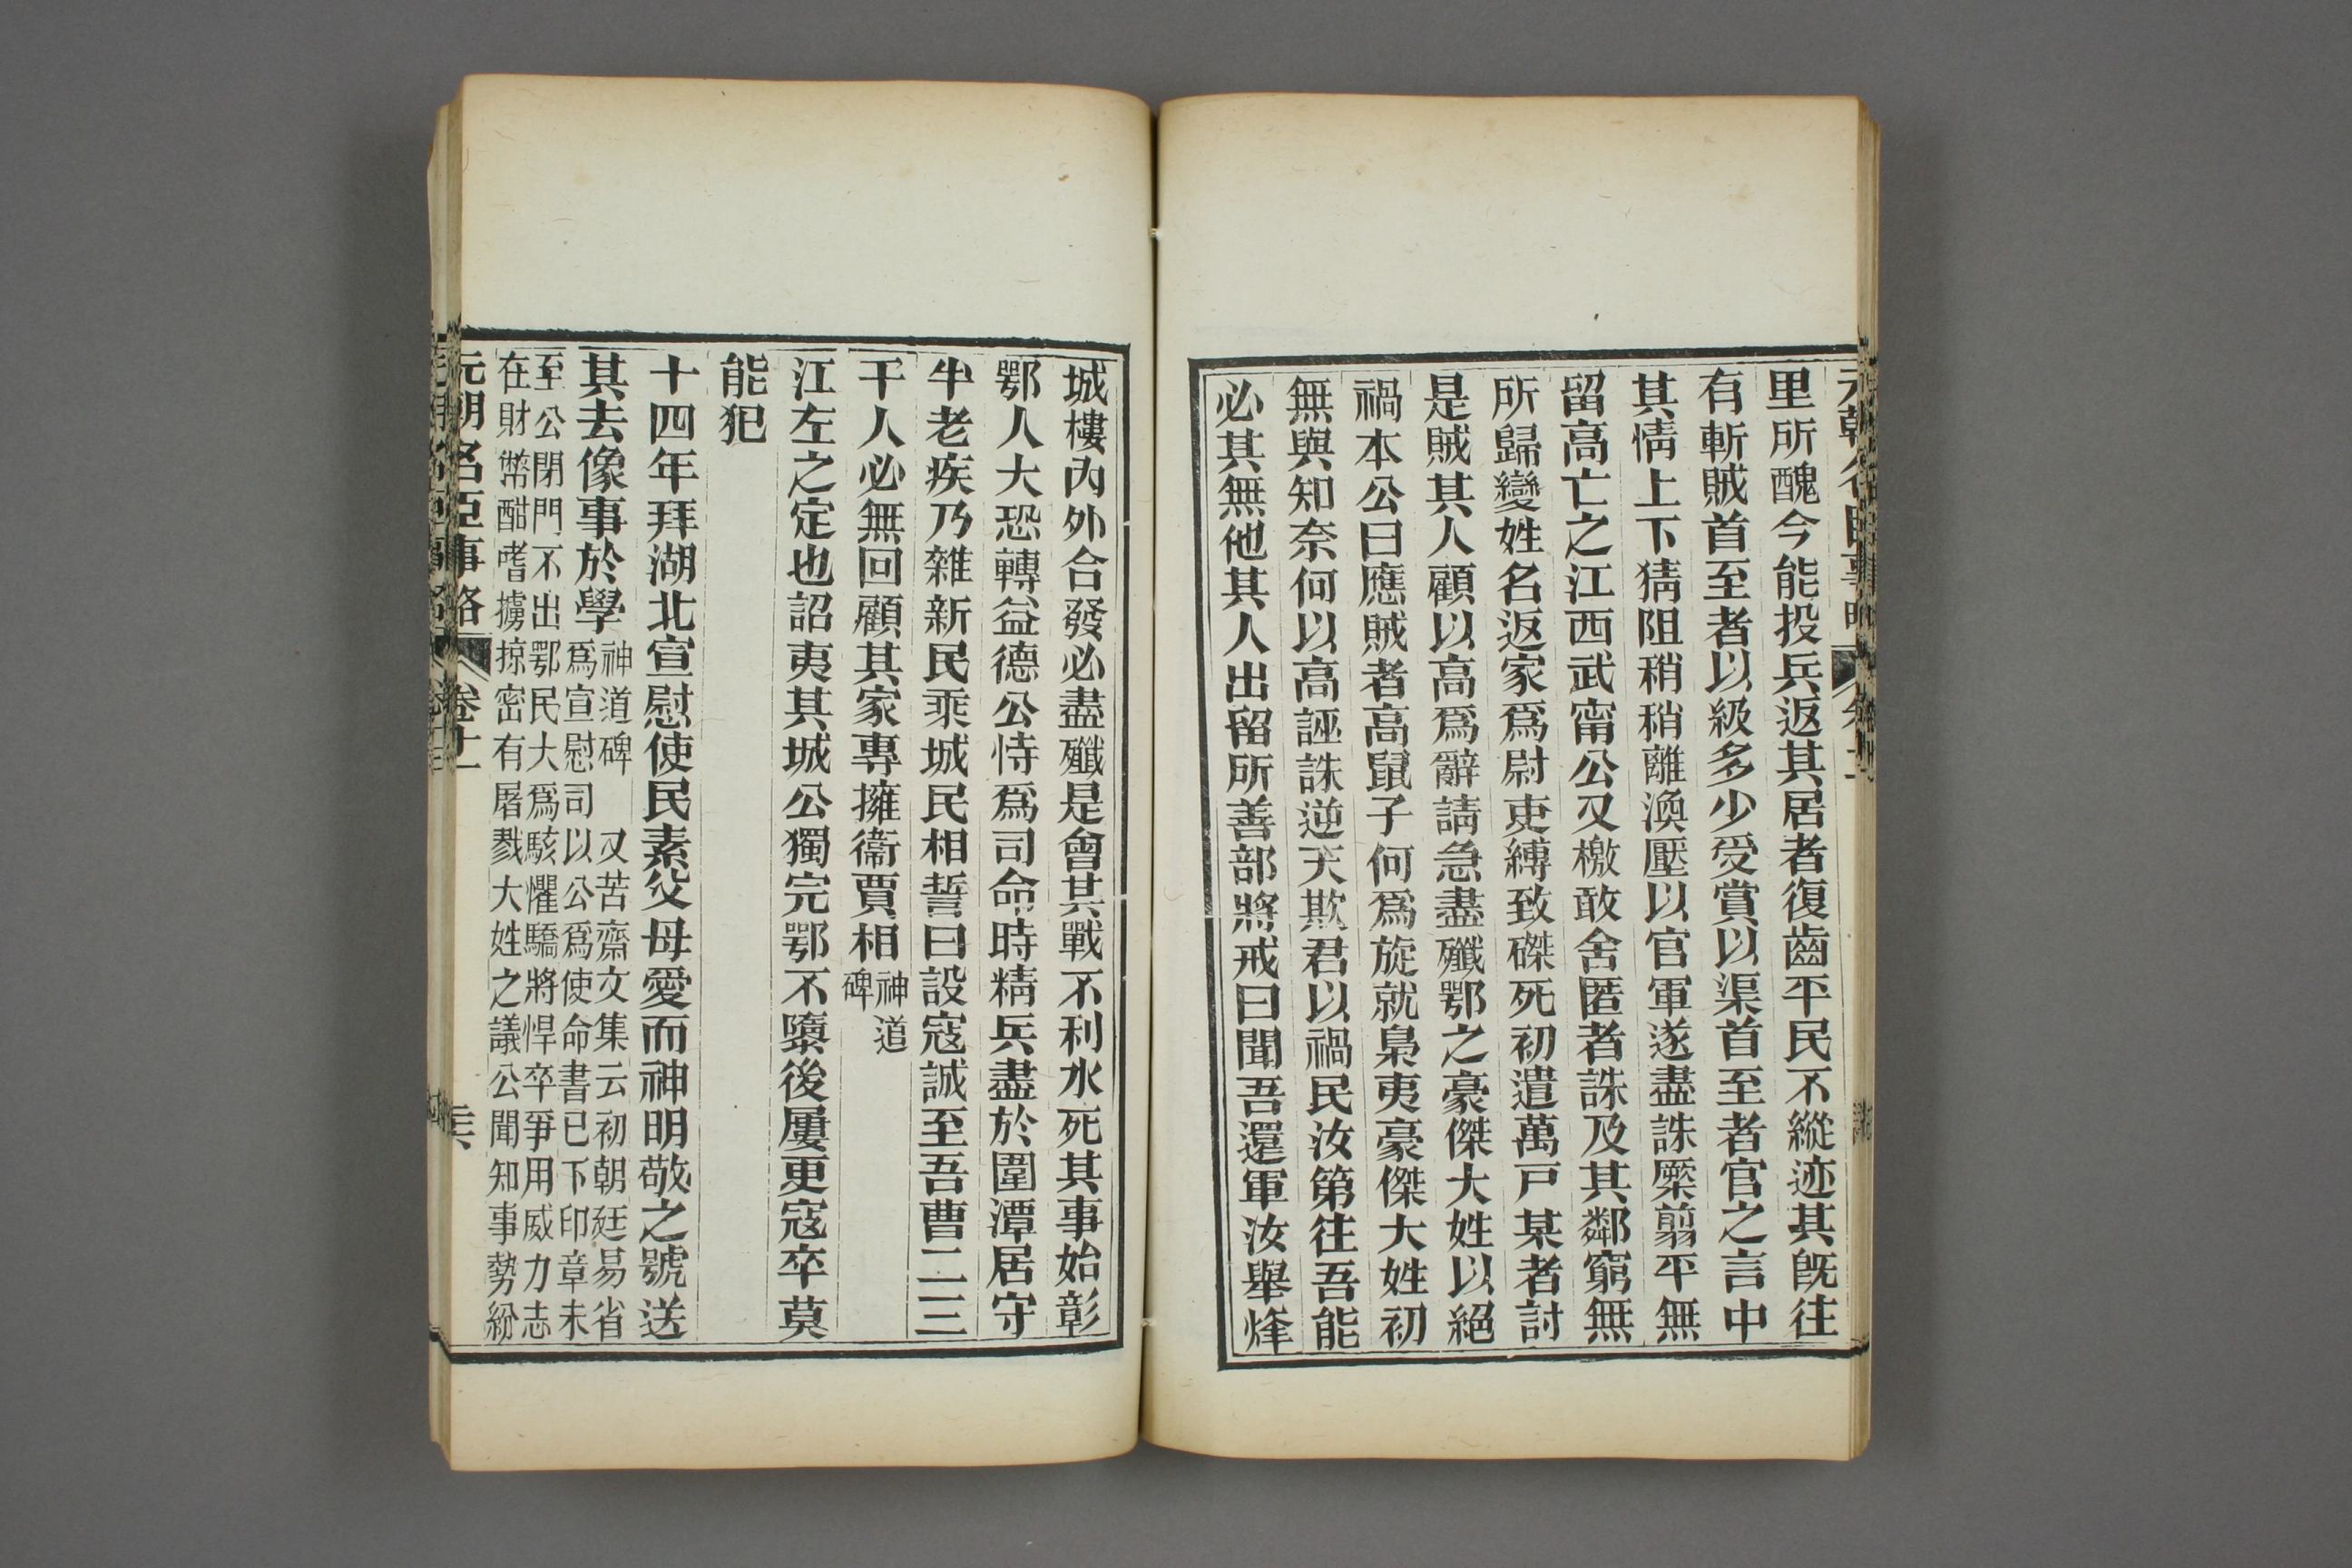 里所醜今能投兵返其居者復齒平民不縱迹其旣往
有斬賊首至者以級多少受賞以渠首至者官之言中
其情上下猜阻稍稍離渙壓以官軍遂盡誅㢘翦平無
留高亡之江西武甯公又檄敢舍匿者誅及其鄰窮無
所歸變姓名返家爲尉吏縛致磔死初遣萬戸某者討
是賊其人顧以高爲辭請急盡殲鄂之豪傑大姓以絕
禍本公曰應賊者高鼠子何爲旋就梟夷豪傑大姓初
無與知奈何以高誣誅逆天欺君以禍民汝第往吾能
必其無他其人出留所善部將戒曰聞吾還軍汝舉烽
城樓內外合發必盡殲是會其戰不利水死其事始彰
鄂人大恐轉益德公恃爲司命時精兵盡於圍潭居守
半老疾乃雜新民乘城民相誓曰設寇誠至吾曹二三
千人必無回顧其家專擁衞賈相神道
碑
江左之定也詔夷其城公獨完鄂不隳後屢更寇卒莫
能犯
十四年拜湖北宣慰使民素父母愛而神明敬之號送
其去像事於學神道碑 又苦齋文集云初朝廷易省
爲宣慰司以公爲使命書已下印章未
至公閉門不出鄂民大爲駭懼驕將悍卒爭用威力志
在財幣酣嗜擄掠密有屠戮大姓之議公聞知事勢紛
元朝名臣事略 卷十一